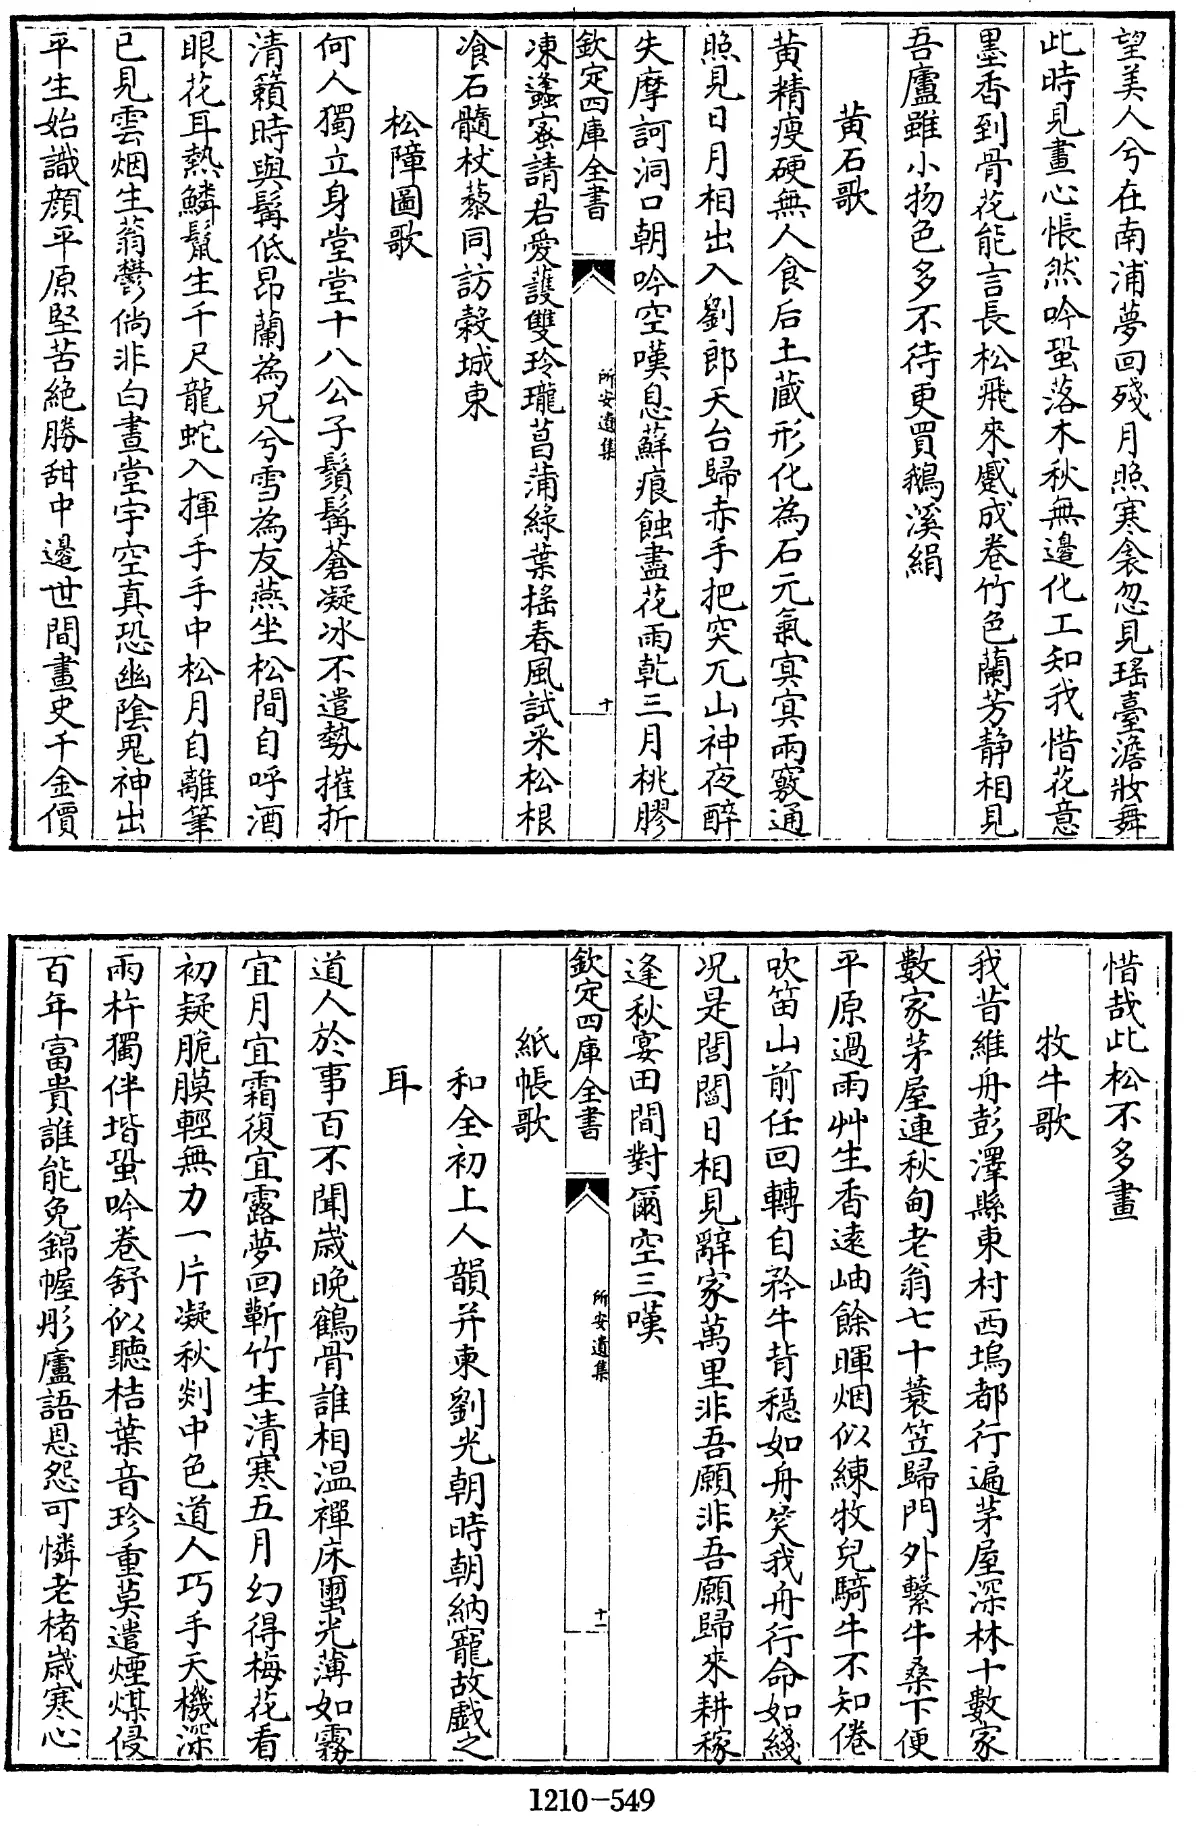 望美人兮在南浦夢回殘月照寒衾忽見瑤臺澹妝舞
此時見畫心悵然吟蛩落木秋無邊化工知我惜花意
墨香到骨花能言長松飛來蹙成卷竹色蘭芳靜相見
吾廬雖小物色多不待更買鵝溪絹
黃石歌
黃精瘦硬無人食后土藏形化為石元氣㝠㝠兩竅通
照見日月相出入劉郎天台歸赤手把突兀山神夜醉
失摩訶洞口朝吟空嘆息蘚痕蝕盡花雨乾三月桃膠
欽定四庫全書
所安遺集
十
凍蜂蜜請君愛護雙玲瓏菖蒲綠葉搖春風試采松根
飡石髓杖藜同訪穀城東
松障圖歌
何人獨立身堂堂十八公子鬚髯蒼凝冰不遣勢摧折
清籟時與髯低昂蘭為兄兮雪為友燕坐松間自呼酒
眼花耳熱鱗鬛生千尺龍蛇入揮手手中松月自離筆
已見雲烟生蓊鬱倘非白晝堂宇空真恐幽陰鬼神出
平生始識顏平原堅苦絶勝甜中邊世間畫史千金價
惜哉此松不多畫
牧牛歌
我昔維舟彭澤縣東村西塢都行遍茅屋深林十數家
數家茅屋連秋甸老翁七十蓑笠歸門外繫牛桑下便
平原過雨艸生香遠岫餘暉烟似練牧兒騎牛不知倦
吹笛山前任回轉自矜牛背穩如舟笑我舟行命如綫
況是閭閻日相見辭家萬里非吾願非吾願歸來耕稼
逢秋宴田間對爾空三嘆
欽定四庫全書
所安遺集
十一
紙帳歌
和全初上人韻并柬劉光朝時朝納寵故戲之
耳
道人於事百不聞歳晚鶴骨誰相溫禪床璽光薄如霧
宜月宜霜復宜露夢回蘄竹生清寒五月幻得梅花看
初疑脆膜輕無力一片凝秋剡中色道人巧手天機深
雨杵獨伴堦蛩吟卷舒似聽桔葉音珍重莫遣煙煤侵
百年富貴誰能免錦幄彤廬語恩怨可憐老楮歳寒心
1210-549